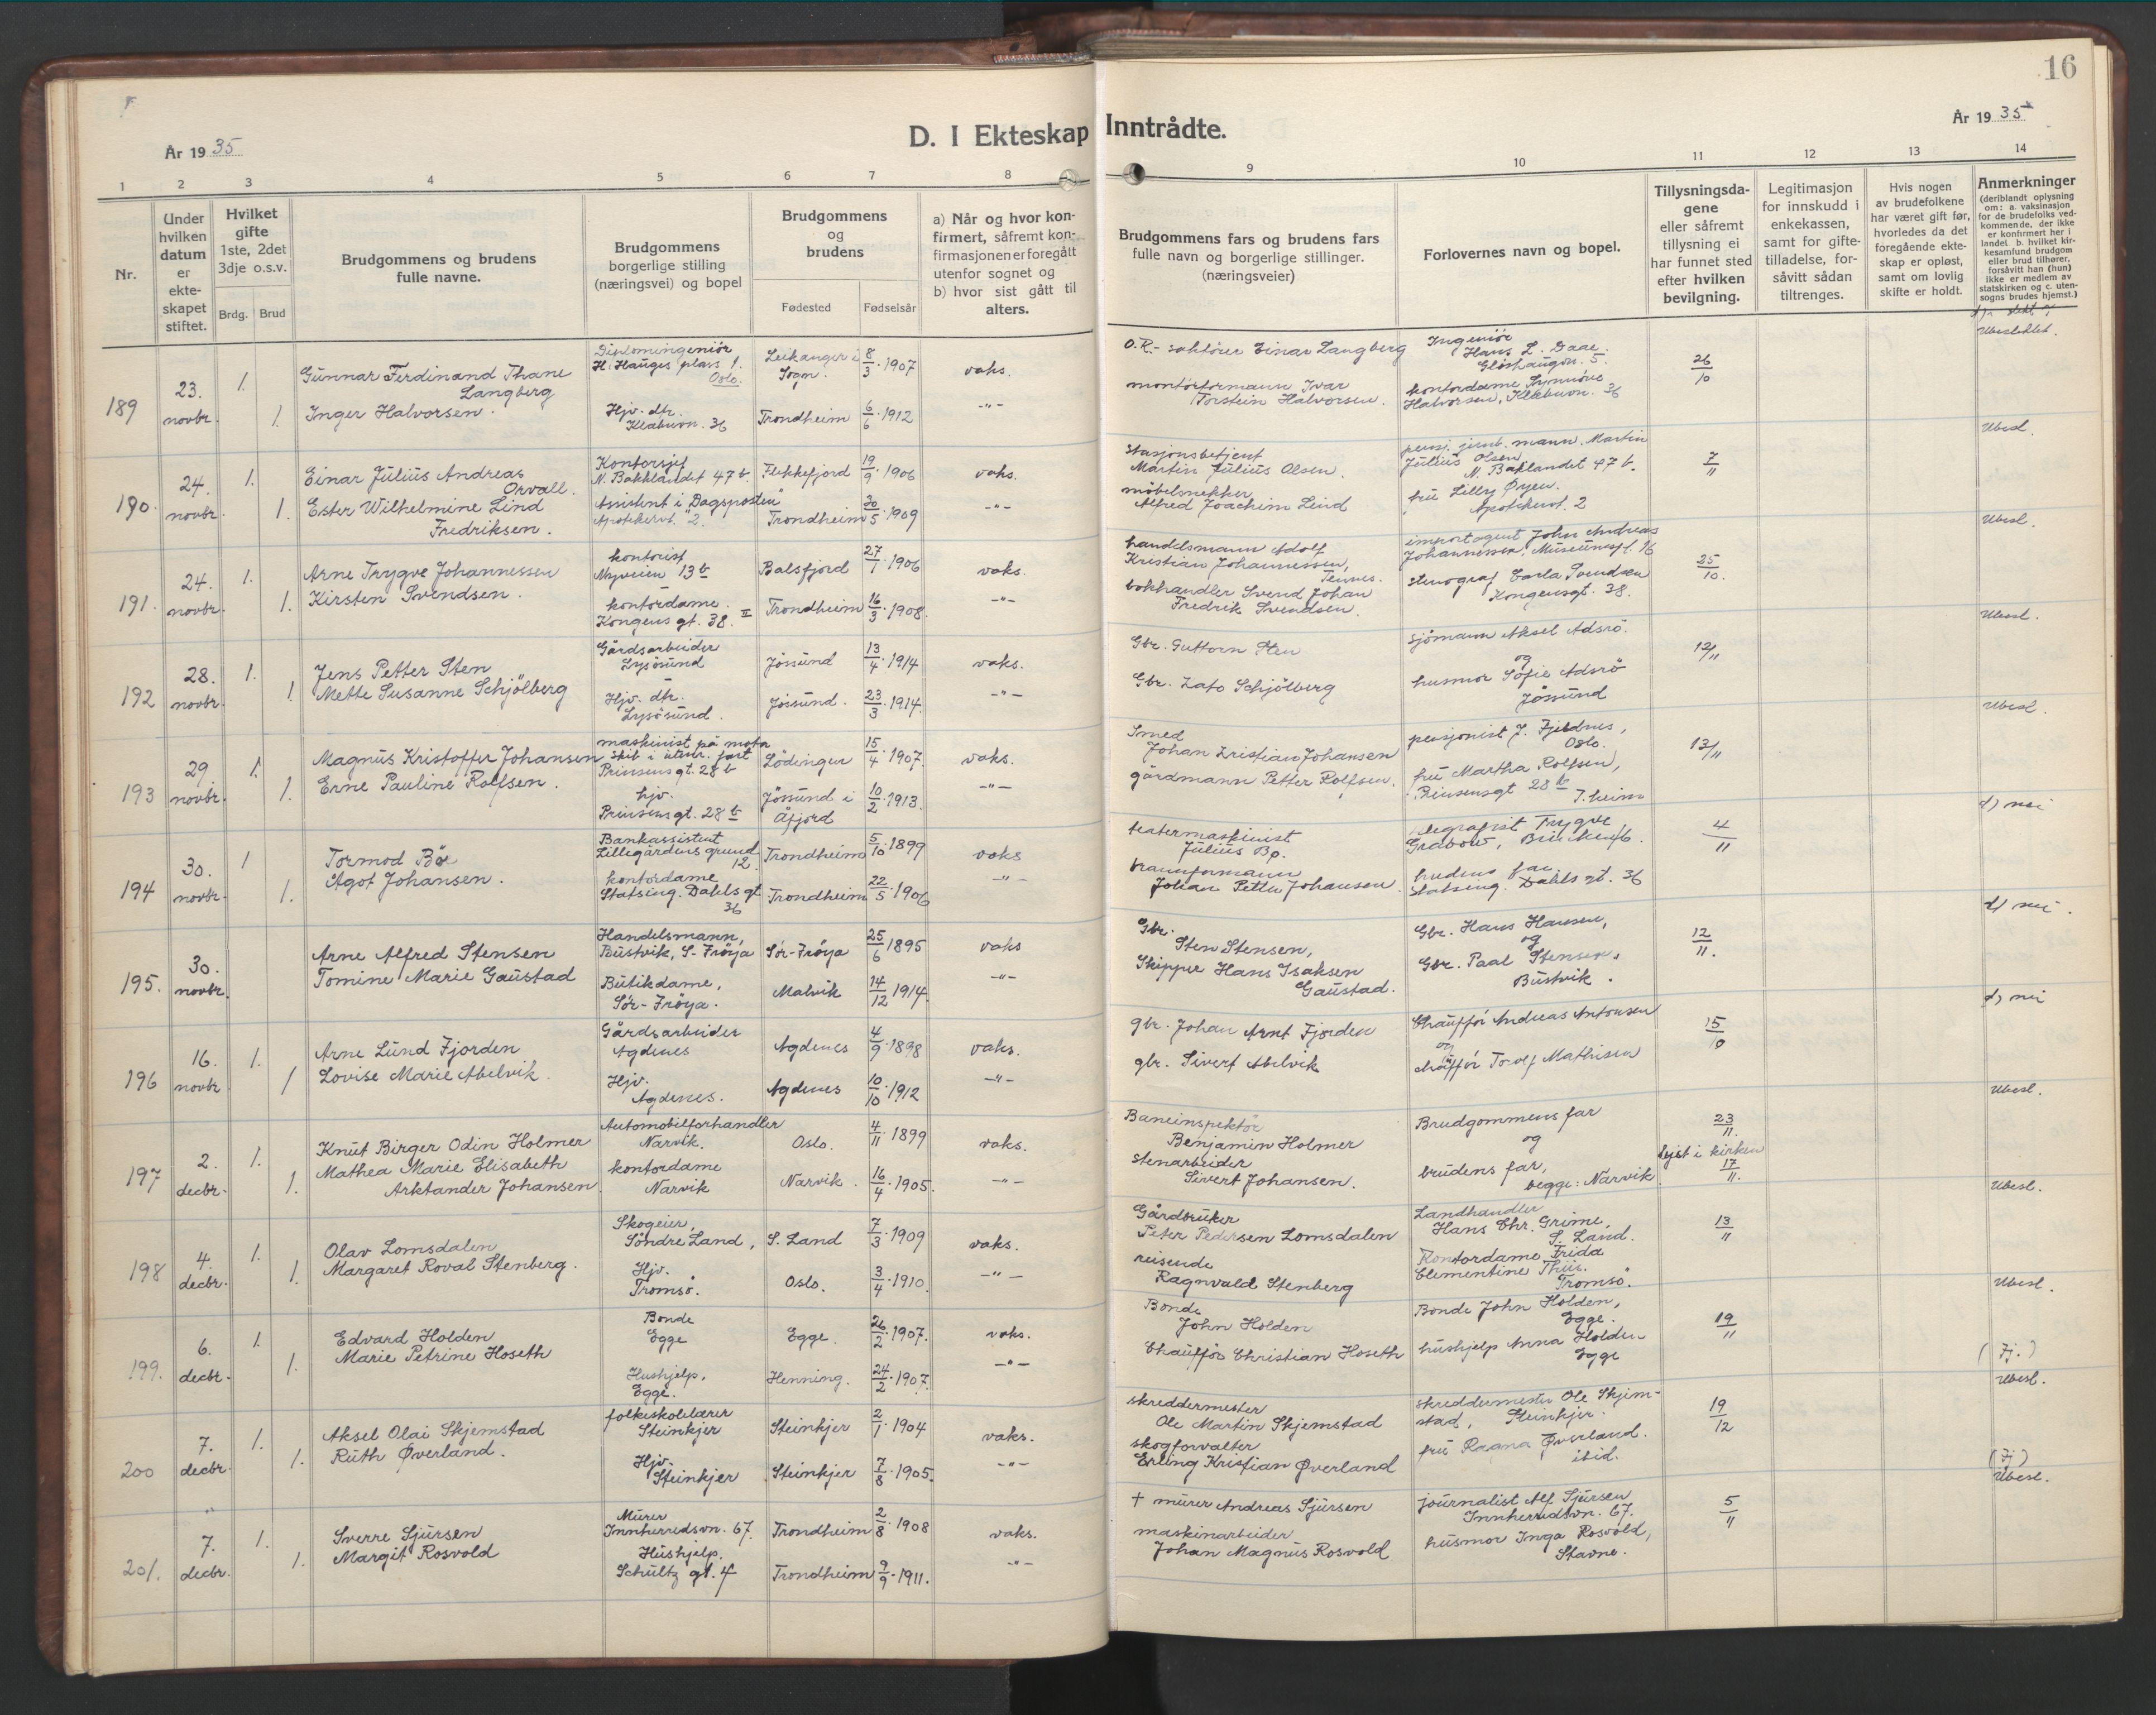 16
År 1935
D. I Ekteskap Inntrådte.
År 1935
1 2 3 4 5 6 7 8 9 10 11 12 13 14
Nr.
Under hvilken datum er ekteskapet stiftet.
Hvilket gifte 1ste, 2det 3dje o.s.v.
Brdg. Brud
Brudgommens og brudens fulle navne.
Brudgommens borgerlige stilling (næringsvei) og bopel
Brudgommens og brudens
Fødested Fødselsår
a) Når og hvor konfirmert, såfremt konfirmasjonen er foregått utenfor sognet og b) hvor sist gått til alters.
Brudgommens fars og brudens fars fulle navn og borgerlige stillinger. (næringsveier)
Forlovernes navn og bopel.
Tillysningsdagene eller såfremt tillysning ei har funnet sted efter hvilken bevilgning.
Legitimasjon for innskudd i enkekassen, samt for giftetilladelse, forsåvitt sådan tiltrenges.
Hvis nogen av brudefolkene har været gift før, hvorledes da det foregående ekteskap er opløst, samt om lovlig skifte er holdt.
Anmerkninger (deriblandt oplysning om: a. vaksinasjon for de brudefolks vedkommende, der ikke er konfirmert her i landet b. hvilket kirkesamfund brudgom eller brud tilhører, forsåvitt han (hun) ikke er medlem av statskirken og c. utensogns brudes hjemst.)
189 23. novbr. 1. Gunnar Ferdinand Thane Langberg Diplomingeniör H. Hauges plass 1. Oslo. Leikanger i Sogn. 8/3 1907 vaks. Einar Langberg Ingeniör Hans L. Daae. 26/10 Ubeslektet.
1. Inger Halvorsen. Hjv. dtr. Klæbuvn. 36 Trondheim 6/6 1912 -"- montörformann Ivar Torstein Halvorsen. kontordame Synnöve Halvorsen, Klæbuvn. 36
190. 24. novbr. 1. Einar Julius Andreas Orvall. Kontorsjef N. Bakklandet 47 b. Flekkefjord 19/9 1906 vaks. stasjonsbetjent Martin Julius Olsen. pensj. jernb. mann. Martin Julius Olsen N. Baklandet 47 b. 7/11 Ubesl.
1. Ester Wilhelmine Lind Fredriksen. Assistent i "Dagsposten" Apotekervt. 2. Trondheim 20/5 1909 -"- möbelsnekker Alfred Joachim Lind fru Lilly Øyen. Apotekervt. 2
191. 24. novbr. 1. Arne Trygve Johannessen kontorist Nyveien 13 b Balsfjord 27/1 1906 vaks. handelsmann Adolf Kristian Johannessen, Tennes. importagent John Andreas Johannessen, Museumspl. 16 25/10. Ubesl.
1. Kirsten Svendsen. kontordame. Kongens gt. 38. II Trondheim 16/3 1908. -"- bokhandler Svend Johan Fredrik Svendsen. stenograf Carla Svendsen Kongensgt. 38.
192 28. novbr. 1. Jens Petter Sten Gårdsarbeider Lysösund Jössund 13/4 1914 vaks. Gbr. Guttorm Sten sjömann Aksel Adsrö. og 12/11 Ubesl.
1. Mette Susanne Schjölberg Hjv. dtr. Lysösund. Jössund. 23/3 1914. -"- Gbr. Schjölberg husmor Sofie Adsrö Jössund
193 29 novbr. 1. Magnus Kristoffer Johansen maskinist på motor skib i utenr. fart Prinsens gt. 28 b Lödingen 15/4 1907. vaks. Smed Johan Kristian Johansen pensjonist J. Fjeldnes, Oslo. 13/11 Ubesl.
1. Erne Pauline Rolfsen. hjv. Prinsens gt. 28 b Jössund i Åfjord 10/2 1913. -"- gårdmann Petter Rolfsen. fru Martha Rolfsen, Prinsensgt 28 b T.heim
194 30. novbr. 1 Tormod Bö Bankassistent Lillegårdens grund 12. Trondheim 5/10 1899 vaks teatermaskinist Julius Bö. telegrafist Trygve Grabow, 4/11 d) nei
1. Ågot Johansen. kontordame Statsing. Dahls gt 36 Trondheim 22/5 1906 -"- brannformann Johan Petter Johansen. brudens far Statsing. Dahls gt. 36
195. 30. novbr. Arne Alfred Stensen Handelsmann, Bustvik, S-Fröya Sör-Fröya 25/6 1895 vaks Gbr. Sten Stensen, Gbr. Hans Hansen, og 12/11. d) nei.
Tomine Marie Gaustad Butikdame, Sör-Fröya. Malvik 14/12 1914. -"- Skipper Hans Isaksen Gaustad. Gbr. Paal Stensen, Bustvik.
196 16. novbr 1. Arne Lund Fjorden Gårdsarbeider Agdenes Agdenes 4/9 1898 vaks. gbr. Johan Arnt Fjorden Chauffør Andreas Antonsen og 15/10 d) nei
1 Lovise Marie Abelvik. Hjv. Agdenes. Agdenes 10/10 1912 -"- gbr. Sivert Abelvik chauffør Torolf Mathisen
197 2. decbr. 1. Knut Birger Odin Holmer Automobilforhandler Narvik. Oslo. 4/11 1899 vaks. Baneinspektör Benjamin Holmer Brudgommens far og 23/11. Ubesl.
1. Mathea Marie Elisabeth Arktander Johansen. kontordame Narvik Narvik. 16/4 1905. -"- stenarbeider Sivert Johansen. brudens far, begge: Narvik lyst i kirken 17/11.
198 4. decbr. 1. Olav Lomsdalen Skogeier, Söndre Land, S. Land 7/3 1909 vaks. Gårdbruker Peter Pedersen Lomsdalen Landhandler Hans Chr. Grime, S. Land. 13/11 Ubesl.
1. Margaret Roval Stenberg. Hjv. Tromsö. Oslo. 3/4 1910. -"- reisende Ragnvald Stenberg Kontordame Frida Clementine Thiis. Tromsö.
199. 6. decbr. 1. Edvard Holden Bonde Egge Egge. 26/2 1907. vaks. Bonde John Holden Bonde John Holden, Egge. 19/11 Ubesl.
1. Marie Petrine Hoseth Hushjelp, Egge. Henning. 24/2 1907. -"- Chauffør Christian Hoseth hushjelp Anna Holden Egge (Fj.)
200 7. decbr. 1. Aksel Olai Skjemstad folkeskolelærer Steinkjer Steinkjer 2/1 1904 vaks. skreddermester Ole Martin Skjemstad skreddermester Ole Skjemstad, Steinkjer. 19/12 Ubesl.
1. Ruth Øverland. Hjv. Steinkjer Steinkjer 7/8 1905. -"- skogforvalter Erling Kristian Øverland fru Ragna Øverland. ibid. (Fj)
201. 7. decbr. 1. Sverre Sjursen Murer Innherredsvn. 67. Trondheim 2/8 1908 vaks. † murer Andreas Sjursen journalist Alf Sjursen Innherredsvn. 67. 5/11 Ubesl.
1. Margit Rosvold Hushjelp. Schultz gt. 4 Trondheim 9/9 1911. -"- maskinarbeider Johan Magnus Rosvold husmor Inga Rosvold, Stavne.